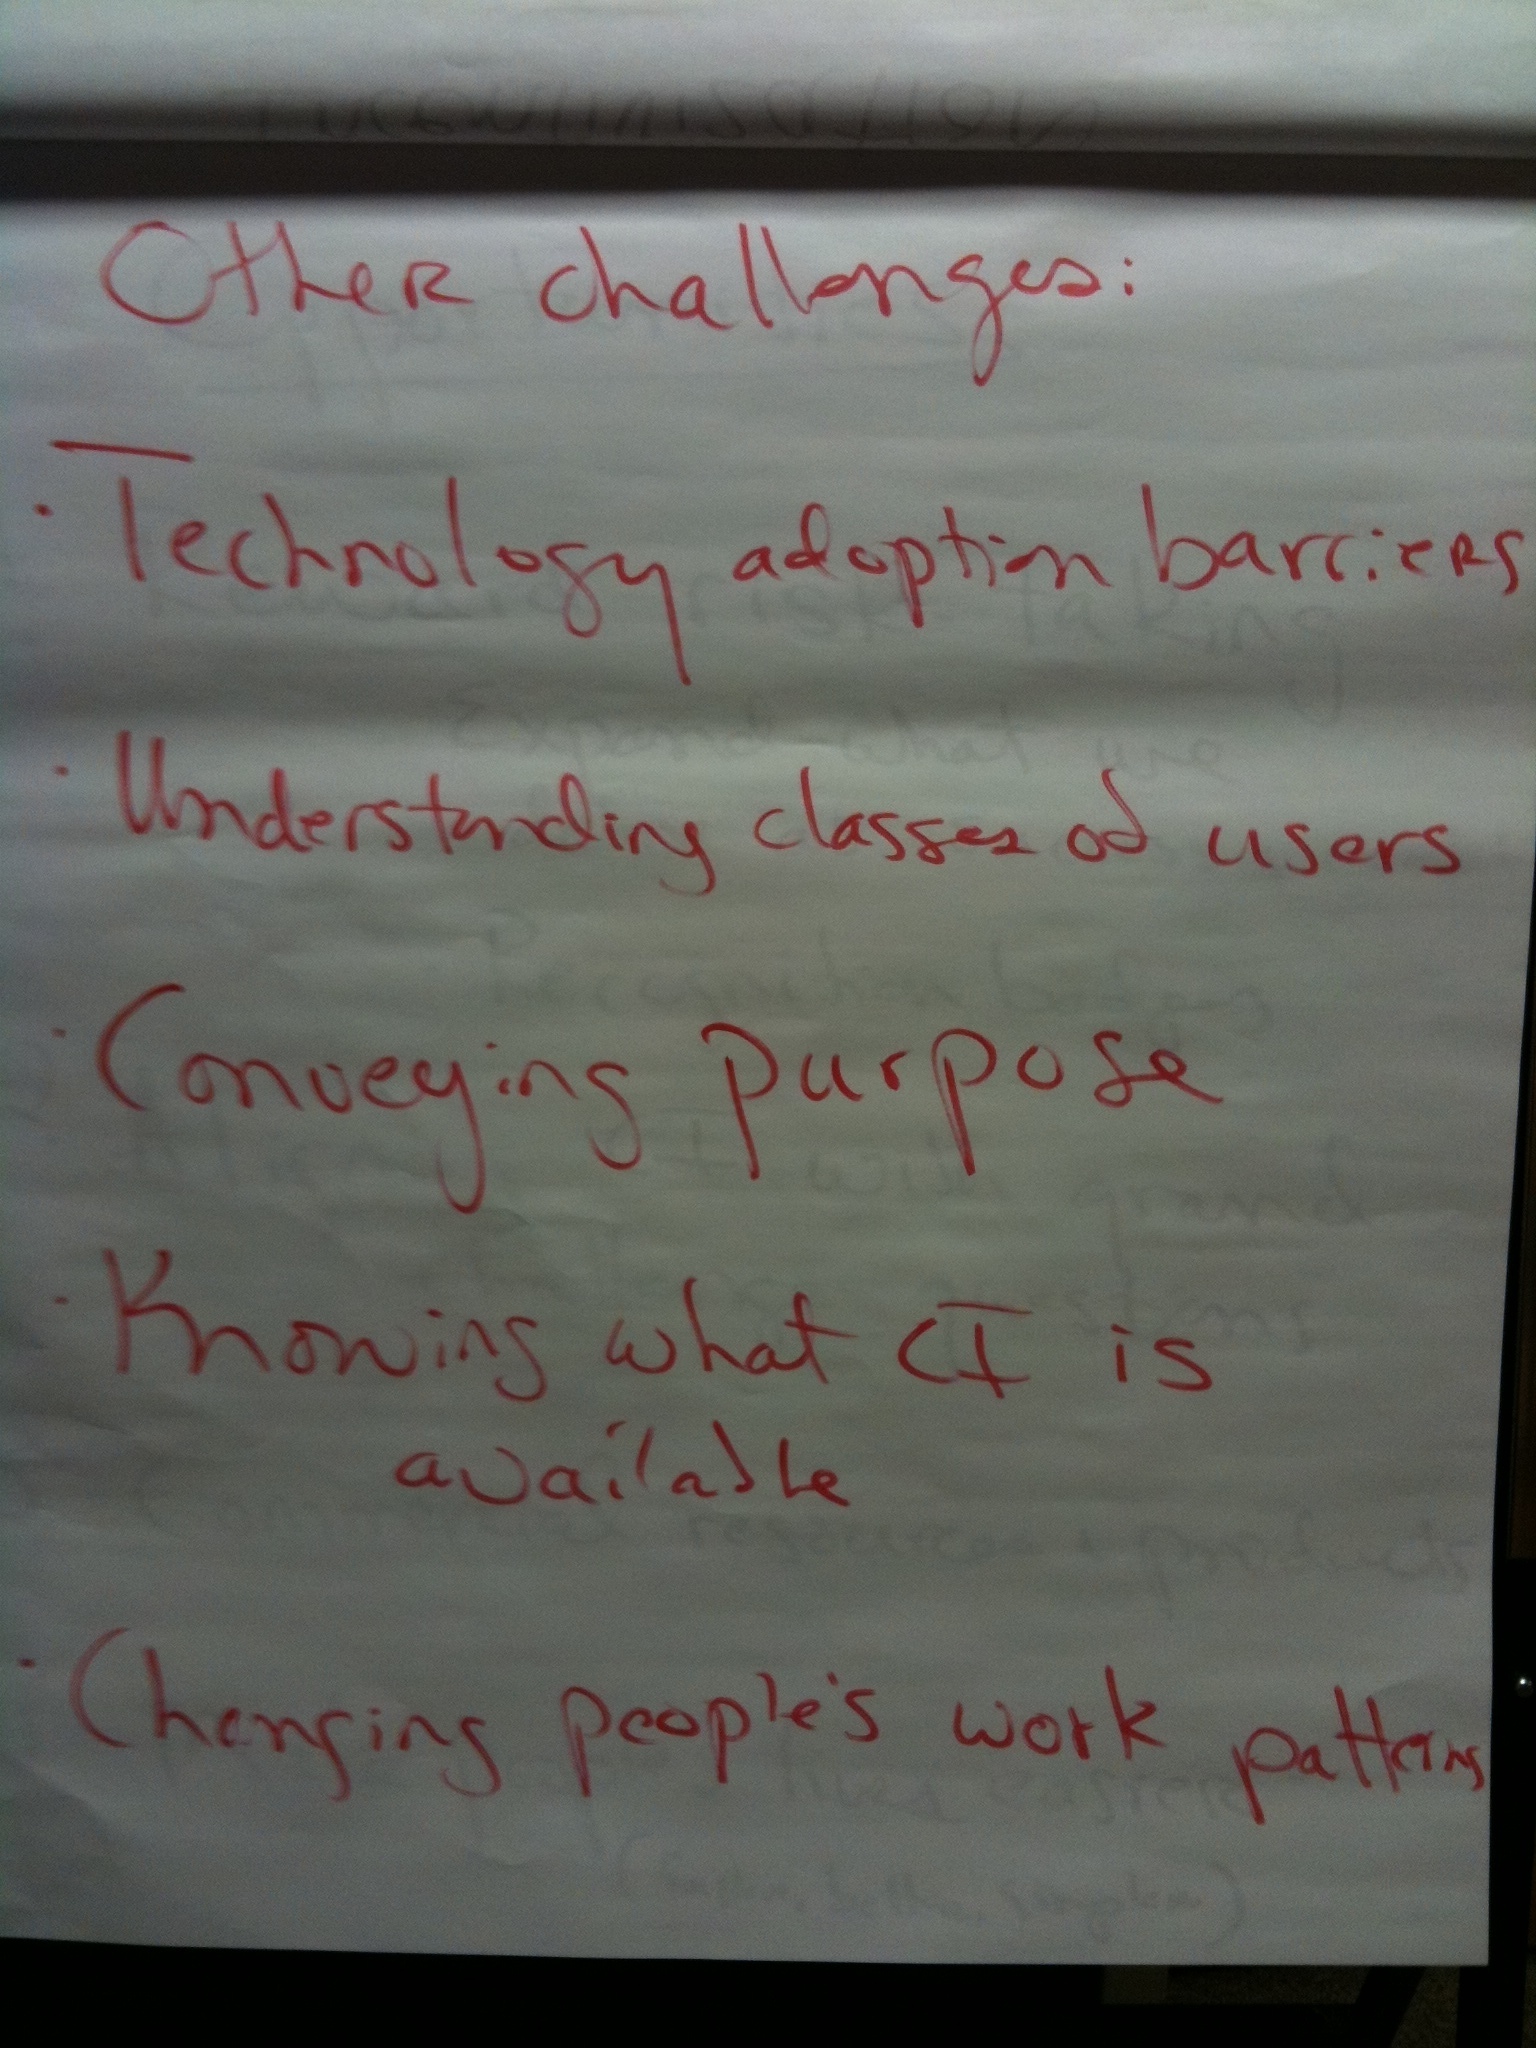 Other challenges:
· Technology adoption barriers
· Understanding classes of users
· Conveying purpose
· Knowing what CI is
available
· Changing people's work patterns